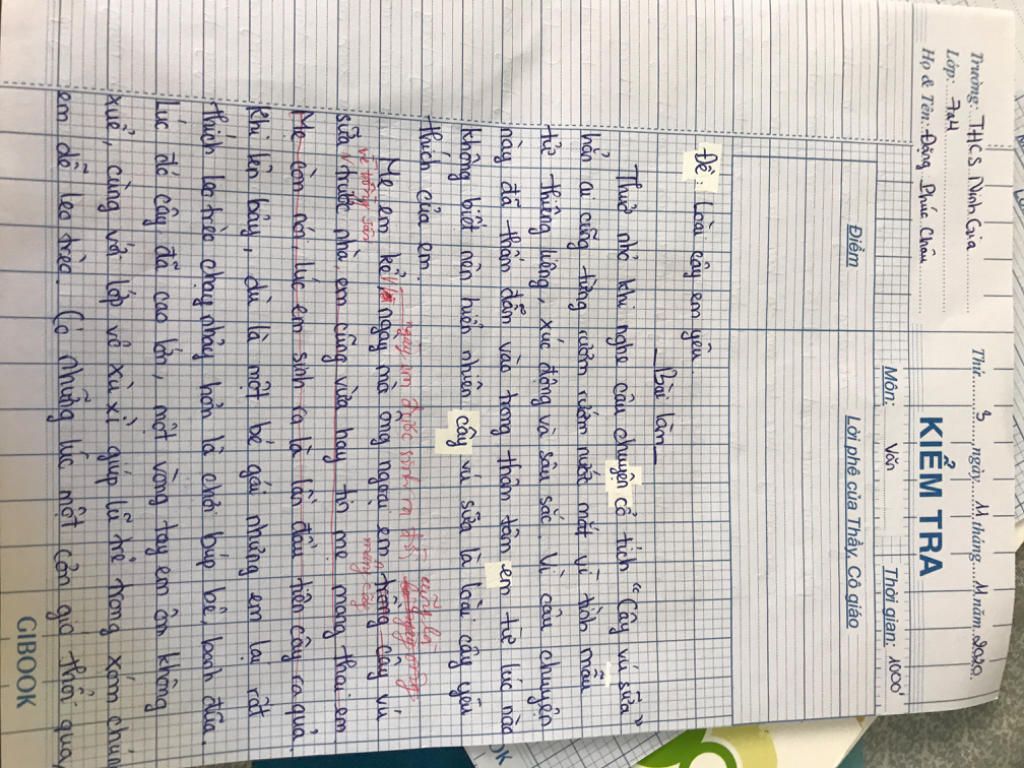 Trường: THCS Ninh Gia
Thứ 3 ngày M tháng M năm 2020
Lớp: 7A4
Họ & Tên: Đặng Phúc Châu
KIỂM TRA
Môn: Văn
Thời gian: 1000'
Điểm
Lời phê của Thầy, Cô giáo
Đề: Loài cây em yêu
Bài làm
Thuở nhỏ khi nghe câu chuyện cổ tích "Cây vú sữa"
hẳn ai cũng từng rươm rướm nước mắt vì tình mẫu
tử thiêng liêng, xúc động và sâu sắc. Vì câu chuyện
này đã thấm đẫm vào trong thâm tâm em từ lúc nào
không biết nên hiển nhiên cây vú sữa là loài cây yêu
thích của em.
ngày em được sinh ra đời cũng là
Mẹ em kể ngày mà ông ngoại em trồng cây vú
về trồng sân
mang cây
sữa trước nhà, em cũng vừa hay tin mẹ mang thai em
Mẹ còn nói lúc em sinh ra là lần đầu tiên cây ra quả.
Khi lên bảy, dù là một bé gái nhưng em lại rất
thích leo trèo chạy nhảy hơn là chơi búp bê, banh đũa.
Lúc đó cây đã cao lớn, một vòng tay em ôm không
xuể, cùng với lớp vỏ xù xì giúp lũ trẻ trong xóm chúng
em dễ leo trèo. Có những lúc một cơn gió thổi qua,
GIBOOK